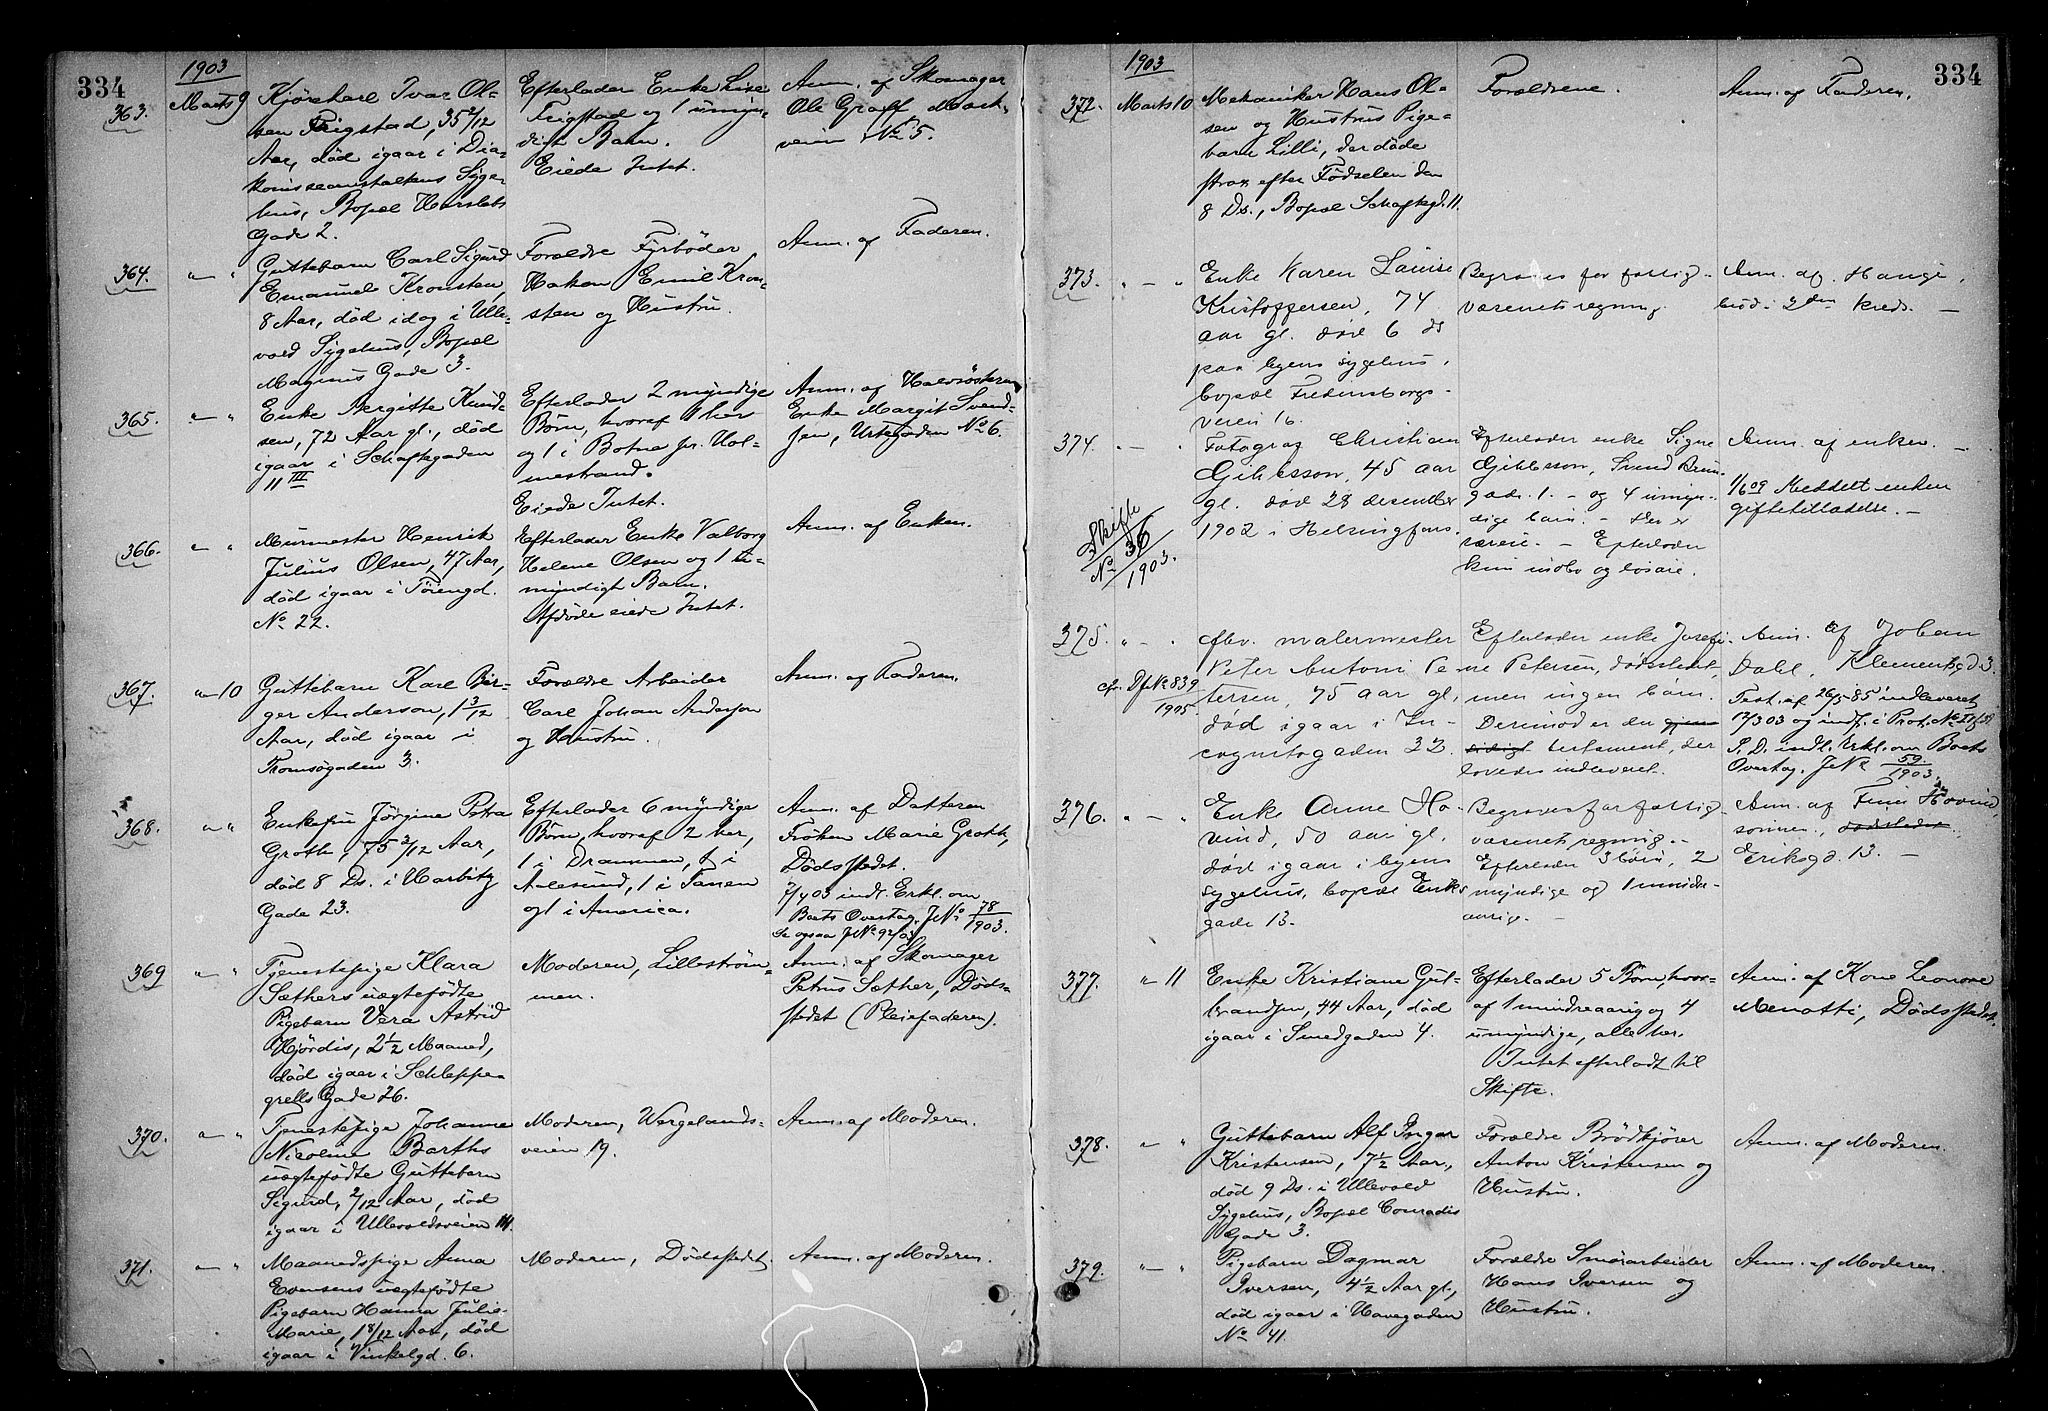 334
1903
363.
Marts 9
Kjørekarl Ivar Ol-
sen Frigstad, 35 2/12
Aar, død igaar i Dia-
konisseanstaltens Syge-
hus, Bopæl Herslebs
Gade 2.
Efterlader Enke Lise
Frigstad og 1 umyn-
digt Barn.
Eiede Intet.
Anm. af Skomager
Ole Graff Mark-
veien No 5.
364.
Guttebarn Carl Sigurd
Emanuel Kronsten,
8 Aar, død idag i Ulle-
vold Sygehus, Bopæl
Magnus Gade 3.
Forældre Fyrbøder
Hakon Emil Kron-
sten og Hustru.
Anm. af Faderen.
365.
Enke Bergitte Knud-
sen, 72 Aar gl., død
igaar i Schaftegaden
11 III
Efterlader 2 myndige
Børn, hvoraf 1 her
og 1 i Botne pr. Hol-
mestrand.
Eiede Intet.
Anm. af Halvsøsteren
Enke Margit Svend-
sen, Urtegaden No 6.
366.
Murmester Henrik
Julius Olsen, 47 Aar,
død igaar i Töiengd.
No 22.
Efterlader Enke Valborg
Helene Olsen og 1 u-
myndigt Barn.
Afdøde eiede Intet.
Anm. af Enken.
367.
" 10
Guttebarn Karl Bir-
ger Anderson, 1 3/12
Aar, død igaar i
Tromsøgaden 3.
Forældre Arbeider
Carl Johan Anderson
og Hustru.
Anm. af Faderen.
368.
Enkefru Jørgine Petra
Groth, 75 2/12 Aar,
død 8 Ds. i Harbitz
Gade 23.
Efterlader 6 myndige
Børn, hvoraf 2 her,
1 i Drammen, 1 i
Aalesund, 1 i Tanen
og 1 i America.
Anm. af Datteren
Frøken Marie Groth,
Dødsstedet.
7/4 03 indl. Erkl. om
Boets Overtag. JNo 78/1903.
Se ogsaa JNo 92/03
369
Tjenestepige Klara
Sæthers uægtefødte
Pigebarn Vera Astrid
Hjørdis, 2 1/2 Maaned,
død igaar i Schleppe-
grells Gade 26.
Moderen, Lillestrøm-
men.
Anm. af Skomager
Petrus Sæther, Døds-
stedet (Pleiefaderen).
370.
Tjenestepige Johanne
Nicoline Barths
uægtefødte Guttebarn
Sigurd, 2/12 Aar, død
igaar i Ullevoldsveien 14.
Moderen, Wergelands-
veien 19.
Anm. af Moderen.
371.
Maanedspige Anna
Evensens uægtefødte
Pigebarn Hanna Julie
Marie, 1 8/12 Aar, død
igaar i Vinkelgd. 6.
Moderen, Dødsstedet.
Anm. af Moderen.
334
1903
372.
Marts 10
Mekaniker Hans Ol-
sen og Hustrus Pige-
barn Lilli, der døde
strax efter Fødselen den
8 Ds., Bopæl Schaftegd. 11.
Forældrene.
Anm. af Faderen.
373.
Enke Karen Louise
Kristoffersen, 74
aar gl. død 6 ds
paa byens sygehus,
bopæl Fredensborgs-
veien 16.
Begraves for fattig-
væsenets regning.
Anm. af Hauge,
bud i 2den kreds. —
374.
Skifte
No 36/1903.
Fotograf Christian
Gihlesson, 45 aar
gl. død 28 desember
1902 i Helsingfors.
Efterlader enke Signe
Gihlesson, Svend Bruns
gade 1. — og 4 umyn-
dige børn. — Her er
værein. — Efterlader
kun indbo og løsøre.
Anm. af enken. —
1/6 09 Meddelt enken
giftetilladelse. —
375.
cfr. DfNo 839
1905.
fhv. malermester
Peter Antoni Pe-
tersen, 75 aar gl.,
død igaar i In-
cognitogaden 32.
Efterlader enke Josefi-
ne Petersen, dødsstedet,
men ingen børn.
Derimod er der gjen-
sidigt testament, der
lovedes indleveret.
Anm. af Johan
Dahl, Klemensgd. 3.
Test. af 26/5-85 indleveret
17/3 03 og indf. i Prot.
S. D. indl. Erkl. om Boets
Overtag. JNo 59./1903.
376.
Enke Anne Ho-
vind, 50 aar gl.
død igaar i byens
sygehus, bopæl Eriks
gade 13.
Begraves for fattig-
væsenets regning. —
Efterlader 3 børn, 2
myndige og 1 mindre-
aarig. —
Anm. af Finn Hovind,
sønnen, dødsstedet.
Eriksgd. 13. —
377.
" 11
Enke Kristiane Gul-
brandsen, 44 Aar, død
igaar i Smedgaden 4.
Efterlader 5 Børn, hvor-
af 1 mindreaarig og 4
umyndige, alle her.
Intet efterladt til
Skifte.
Anm. af Kone Leonore
Menotti, Dødsstedet.
378.
Guttebarn Alf Ingar
Kristensen, 7 1/2 Aar,
død 9 Ds. i Ullevold
Sygehus, Bopæl Conradis
Gade 3.
Forældre Brødkjører
Anton Kristensen og
Hustru.
Anm. af Moderen.
379.
Pigebarn Dagmar
Iversen, 4 1/2 Aar gl.,
død igaar i Havegaden
No 41.
Forældre Smørarbeider
Hans Iversen og
Hustru.
Anm. af Moderen.